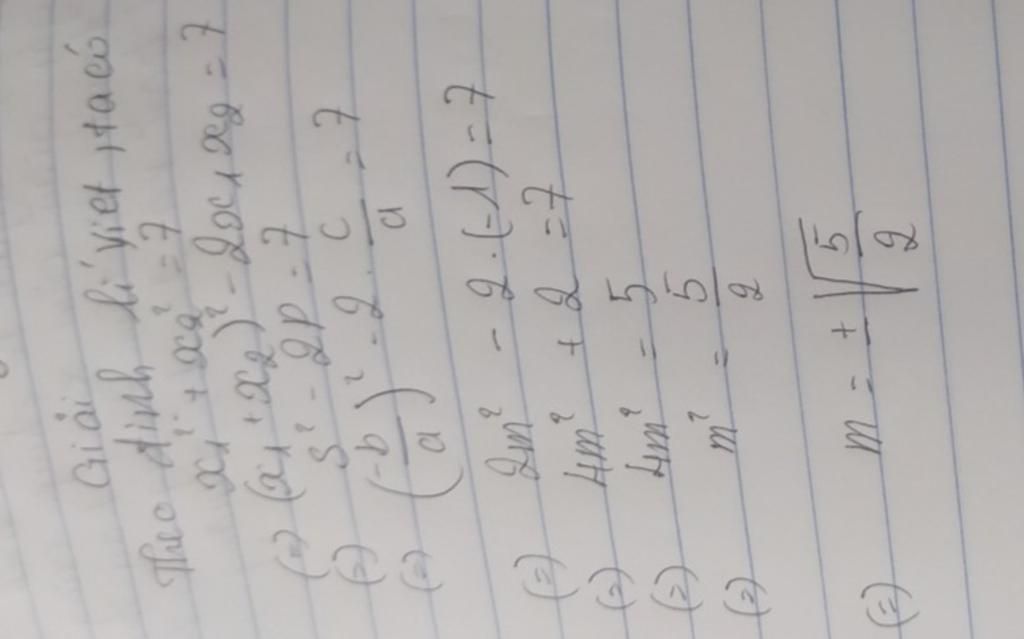 Giải
Theo định lí Viet, ta có
x₁² + x₂² = 7
(=) (x₁ + x₂)² - 2x₁x₂ = 7
(=) S² - 2P = 7
(=) (-b/a)² - 2 . c/a = 7
(=) 2m² - 2 . (-1) = 7
(=) 4m² + 2 = 7
(=) 4m² = 5
(=) m² = 5/2
(=) m = ±√(5/2)